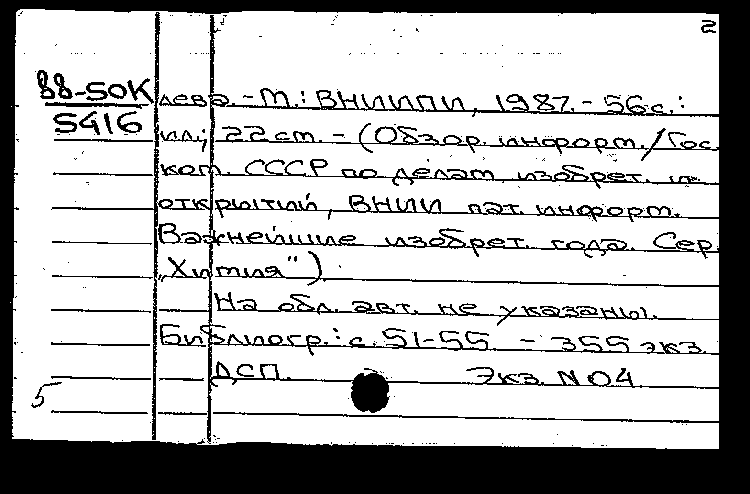 2
88-50К
5416
лева. - М.: ВНИИПИ, 1987. - 56 с.:
ил; 22 см. - (Обзор. информ./Гос.
ком. СССР по делам изобрет. и
открытий, ВНИИ пат. информ.
Важнейшие изобрет. года. Сер.
„Химия")
На обл. авт. не указаны.
Библиогр.: с. 51-55 - 355 экз.
ДСП. Экз. N 04
5